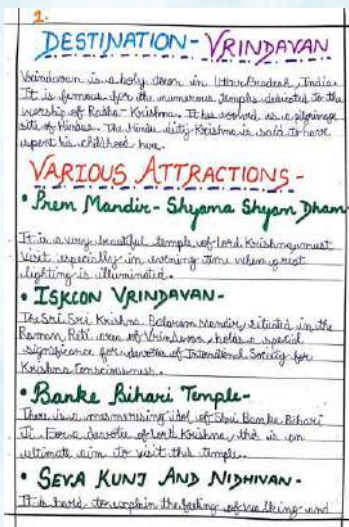 1.
DESTINATION- VRINDAVAN
Vrindavan is a holy town in Uttar Pradesh, India.
It is famous for the numerous temples dedicated to the
worship of Radha-Krishna. It has evolved as a pilgrimage
site of Hindus. The Hindu diety Krishna is said to have
spent his childhood here.
VARIOUS ATTRACTIONS-
• Prem Mandir- Shyama Shyam Dham
It is a very beautiful temple of lord Krishna, must
visit especially in evening time when great
lighting is illuminated.
• ISKCON VRINDAVAN-
The Sri Sri Krishna Balaram Mandir, situated in the
Raman Reti area of Vrindavan holds a special
significance for devotees of International Society for
Krishna Consciousness.
• Banke Bihari Temple-
There is a mesmerising idol of Shri Banke Bihari
Ji. For a devotee of Lord Krishna, this is an
ultimate aim to visit this temple.
• SEVA KUNJ AND NIDHIVAN-
It is hard to explain the feeling of walking and